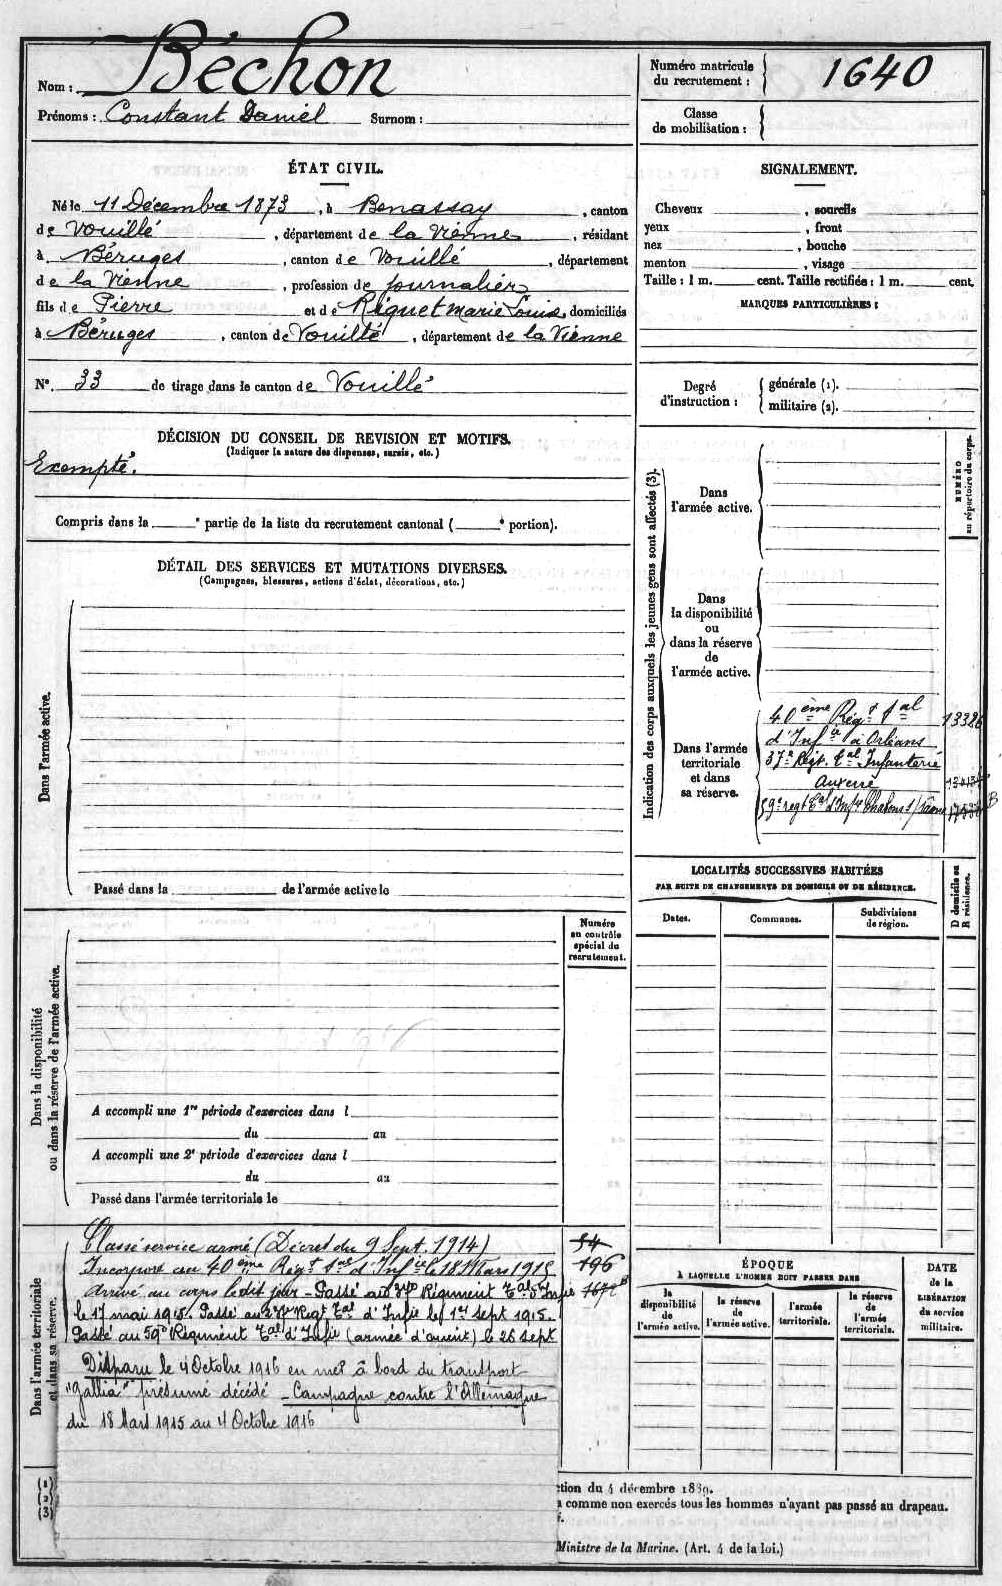 Nom : Béchon
Prénoms : Constant Daniel Surnom :
Numéro matricule du recrutement : 1640
Classe de mobilisation :
ÉTAT CIVIL.
Né le 11 Décembre 1873, à Benassay, canton
de Vouillé, département de la Vienne, résidant
à Béruges, canton de Vouillé, département
de la Vienne, profession de journalier
fils de Pierre et de Riquet marie Louise, domiciliés
à Béruges, canton de Vouillé, département de la Vienne
N°. 33 de tirage dans le canton de Vouillé
SIGNALEMENT.
Cheveux , sourcils
yeux , front
nez , bouche
menton , visage
Taille : 1 m. cent. Taille rectifiée : 1 m. cent.
MARQUES PARTICULIÈRES :
Degré d'instruction : générale (1).
militaire (2).
DÉCISION DU CONSEIL DE REVISION ET MOTIFS.
(Indiquer la nature des dispenses, sursis, etc.)
Exempté.
Compris dans la e partie de la liste du recrutement cantonal ( e portion).
DÉTAIL DES SERVICES ET MUTATIONS DIVERSES.
(Campagnes, blessures, actions d'éclat, décorations, etc.)
Dans l'armée active.
Passé dans la de l'armée active le
Indication des corps auxquels les jeunes gens sont affectés (3).
NUMÉRO au répertoire du corps.
Dans
l'armée active.
Dans
la disponibilité
ou
dans la réserve
de
l'armée active.
Dans l'armée
territoriale
et dans
sa réserve.
40ème Régt tal 13386
d'Infie à Orléans
37e Régt. tal Infanterie
Auxerre
59e regt tal d'Infie Chalons s/ Saône
LOCALITÉS SUCCESSIVES HABITÉES
PAR SUITE DE CHANGEMENTS DE DOMICILE OU DE RÉSIDENCE.
Dates.
Communes.
Subdivisions de région.
D domicile ou R résidence.
Dans la disponibilité
ou dans la réserve de l'armée active.
Numéro
au contrôle
spécial du
recrutement.
A accompli une 1re période d'exercices dans l
du au
A accompli une 2e période d'exercices dans l
du au
Passé dans l'armée territoriale le
Dans l'armée territoriale
et dans sa réserve.
Classé service armé (Décret du 9 Sept. 1914)
Incorporé au 40ème Régt tal d'Infie le 18 Mars 1915 196
Arrivé au corps le dit jour - Passé au 37e Régiment tal d'Infie
le 17 mai 1915. Passé au Régt tal d'Infie le 1er sept 1915.
Passé au 59e Régiment tal d'Infie (armée d'orient) le 26 sept
Disparu le 4 Octobre 1916 en mer à bord du transport
"Gallia" présumé décédé Campagne contre l'Allemagne
du 18 Mars 1915 au 4 Octobre 1916
ÉPOQUE
À LAQUELLE L'HOMME DOIT PASSER DANS
la disponibilité de l'armée active.
la réserve de l'armée active.
l'armée territoriale.
la réserve de l'armée territoriale.
DATE
de la
LIBÉRATION
du service
militaire.
(1)
(2)
(3)
ction du 4 décembre 1889.
comme non exercés tous les hommes n'ayant pas passé au drapeau.
Ministre de la Marine. (Art. 4 de la loi.)